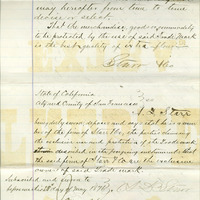 may hereafter from time to time
devise or select.
That the merchandise, goods or commodity
to be protected by the use of said Trade Mark
is the
Starr & Co
State of California
City and County of San Francisco
A. D. Starr
being duly sworn, deposes and says that he is a member
of the firm of Starr & Co, the parties claiming
the exclusive use and protection of the Trade Mark
described in the foregoing instrument; that
the said firm of Starr & Co are the exclusive
owners of said trade mark.
Subscribed and sworn to
before me this day of May 1876